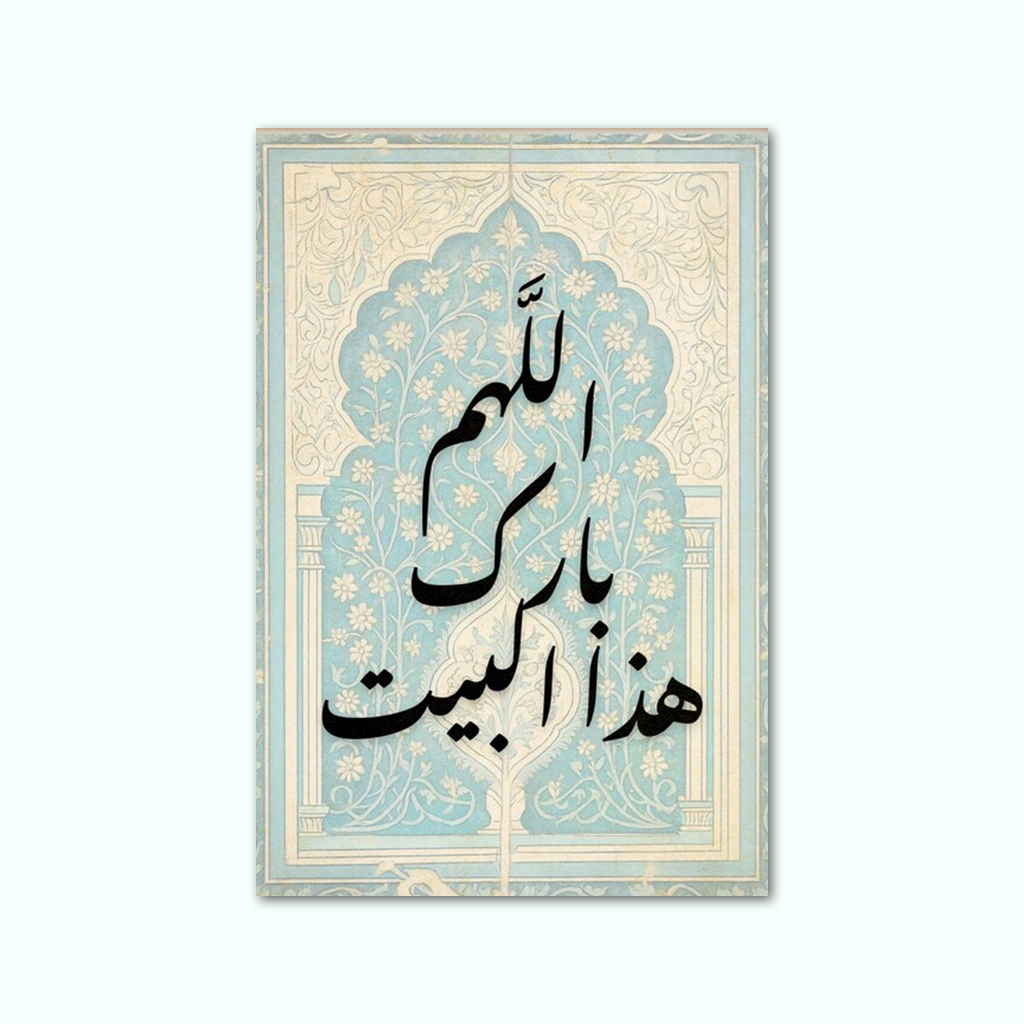 اللَّهم
بارك
هذا البيت